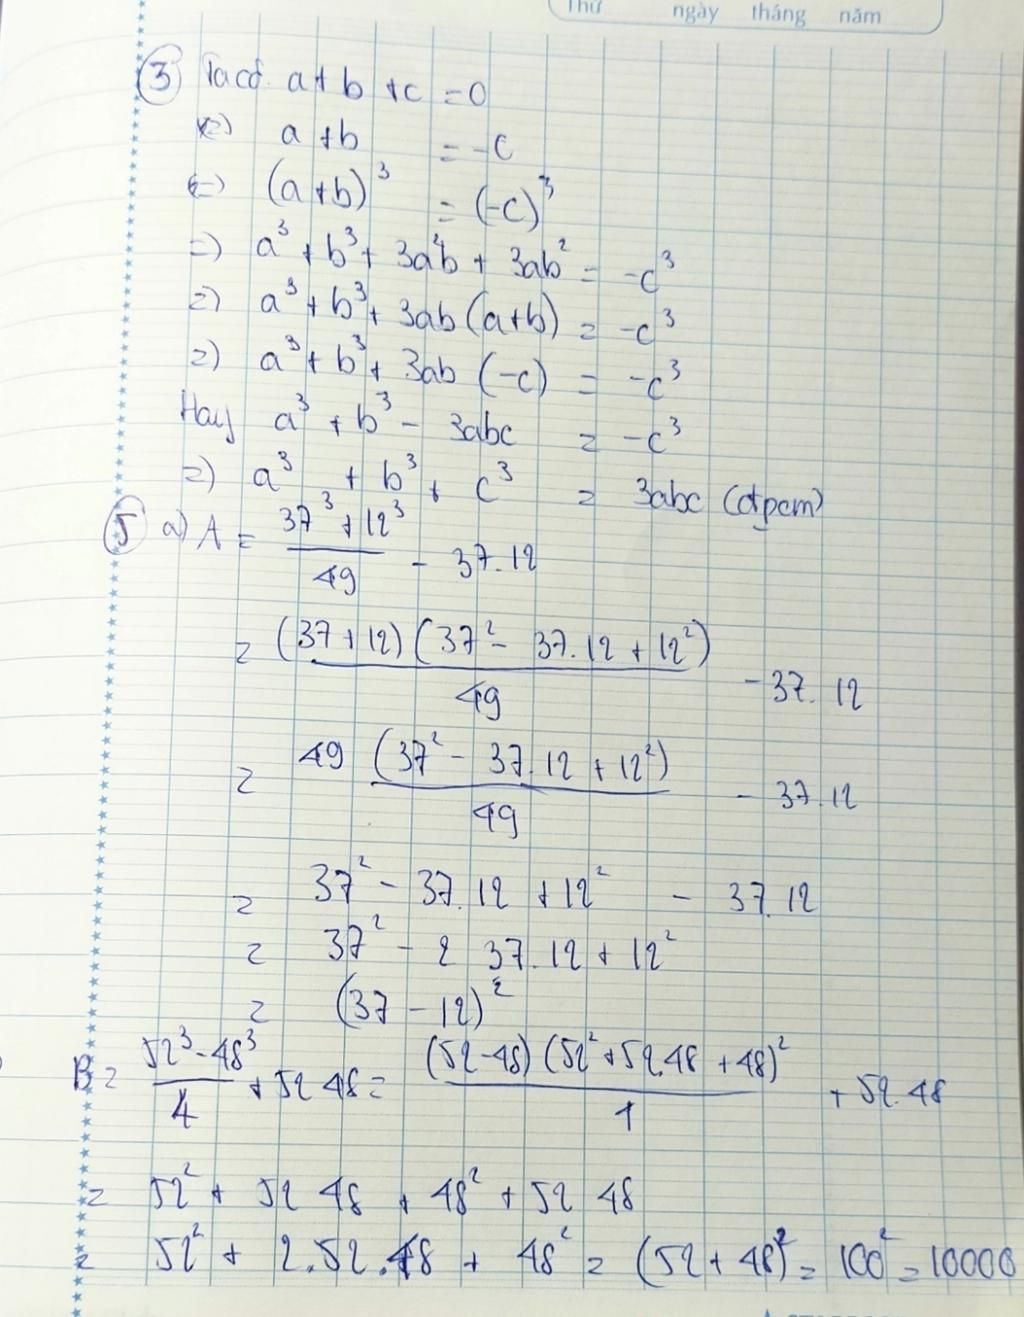 Thứ ngày tháng năm
③ Ta có. a + b + c = 0
(=) a + b = -c
(=) (a + b)³ = (-c)³
=) a³ + b³ + 3a²b + 3ab² = -c³
=) a³ + b³ + 3ab (a+b) = -c³
=) a³ + b³ + 3ab (-c) = -c³
Hay a³ + b³ - 3abc = -c³
=) a³ + b³ + c³ = 3abc (đpcm)
⑤ a) A = (37³ + 12³)/49 - 37.12
= (37 + 12) (37² - 37.12 + 12²)/49 - 37.12
= 49 (37² - 37.12 + 12²)/49 - 37.12
= 37² - 37.12 + 12² - 37.12
= 37² - 2 37.12 + 12²
= (37 - 12)²
B = (52³ - 48³)/4 + 52 48 = (52 - 48) (52² + 52.48 + 48)²/1 + 52.48
= 52² + 52 48 + 48² + 52 48
= 52² + 2.52.48 + 48² = (52 + 48)² = 100² = 10000